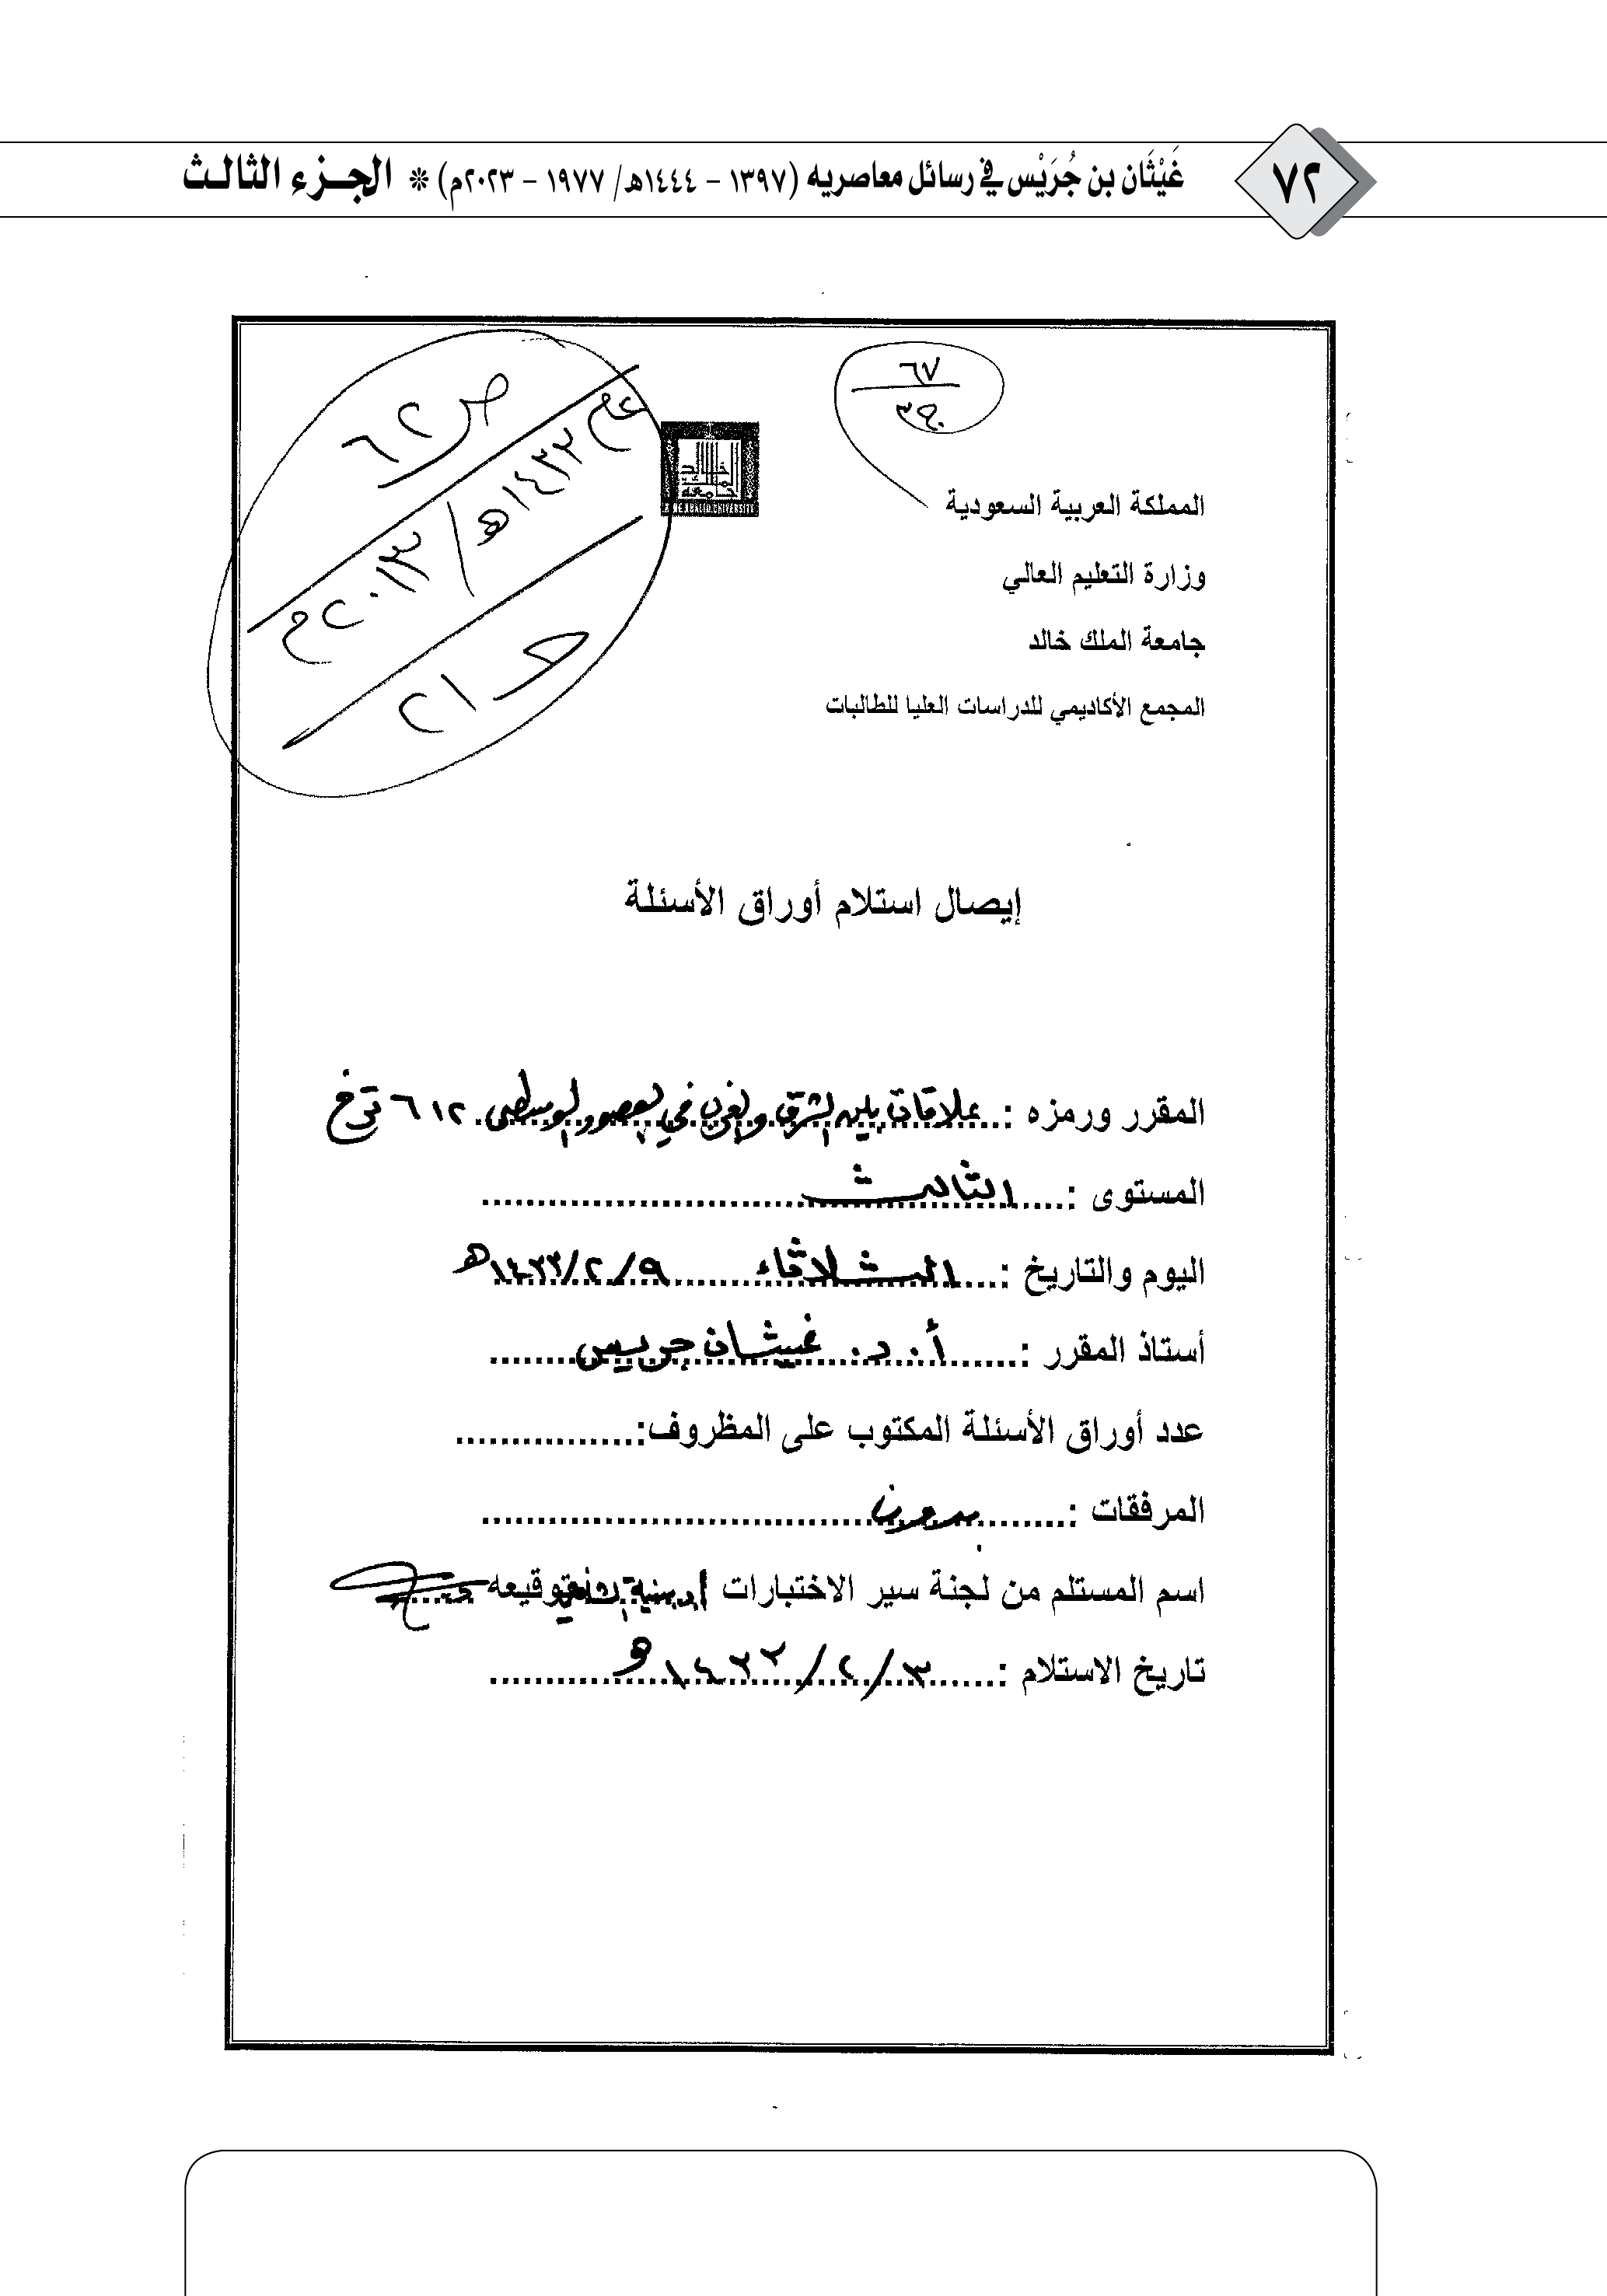 ٧٢
غَيْثَان بن جُرَيْس في رسائل معاصريه (١٣٩٧ - ١٤٤٤هـ/ ١٩٧٧ - ٢٠٢٣م) * الجزء الثالث
٦٧
ج٣
ص ٦٢
عام ١٤٣٣هـ / ٢٠١٣م
ح ٢١
KING KHALID UNIVERSITY
المملكة العربية السعودية
وزارة التعليم العالي
جامعة الملك خالد
المجمع الأكاديمي للدراسات العليا للطالبات
إيصال استلام أوراق الأسئلة
المقرر ورمزه : علاقات بين الشرق والغرب في العصور الوسطى ٦١٢ ترخ
المستوى : الثالث
اليوم والتاريخ : الثلاثاء ٩/٢/١٤٣٣هـ
أستاذ المقرر : أ. د. غيثان جريس
عدد أوراق الأسئلة المكتوب على المظروف:
المرفقات : بدون
اسم المستلم من لجنة سير الاختبارات توقيعه
تاريخ الاستلام : ٣/٢/١٤٣٣هـ